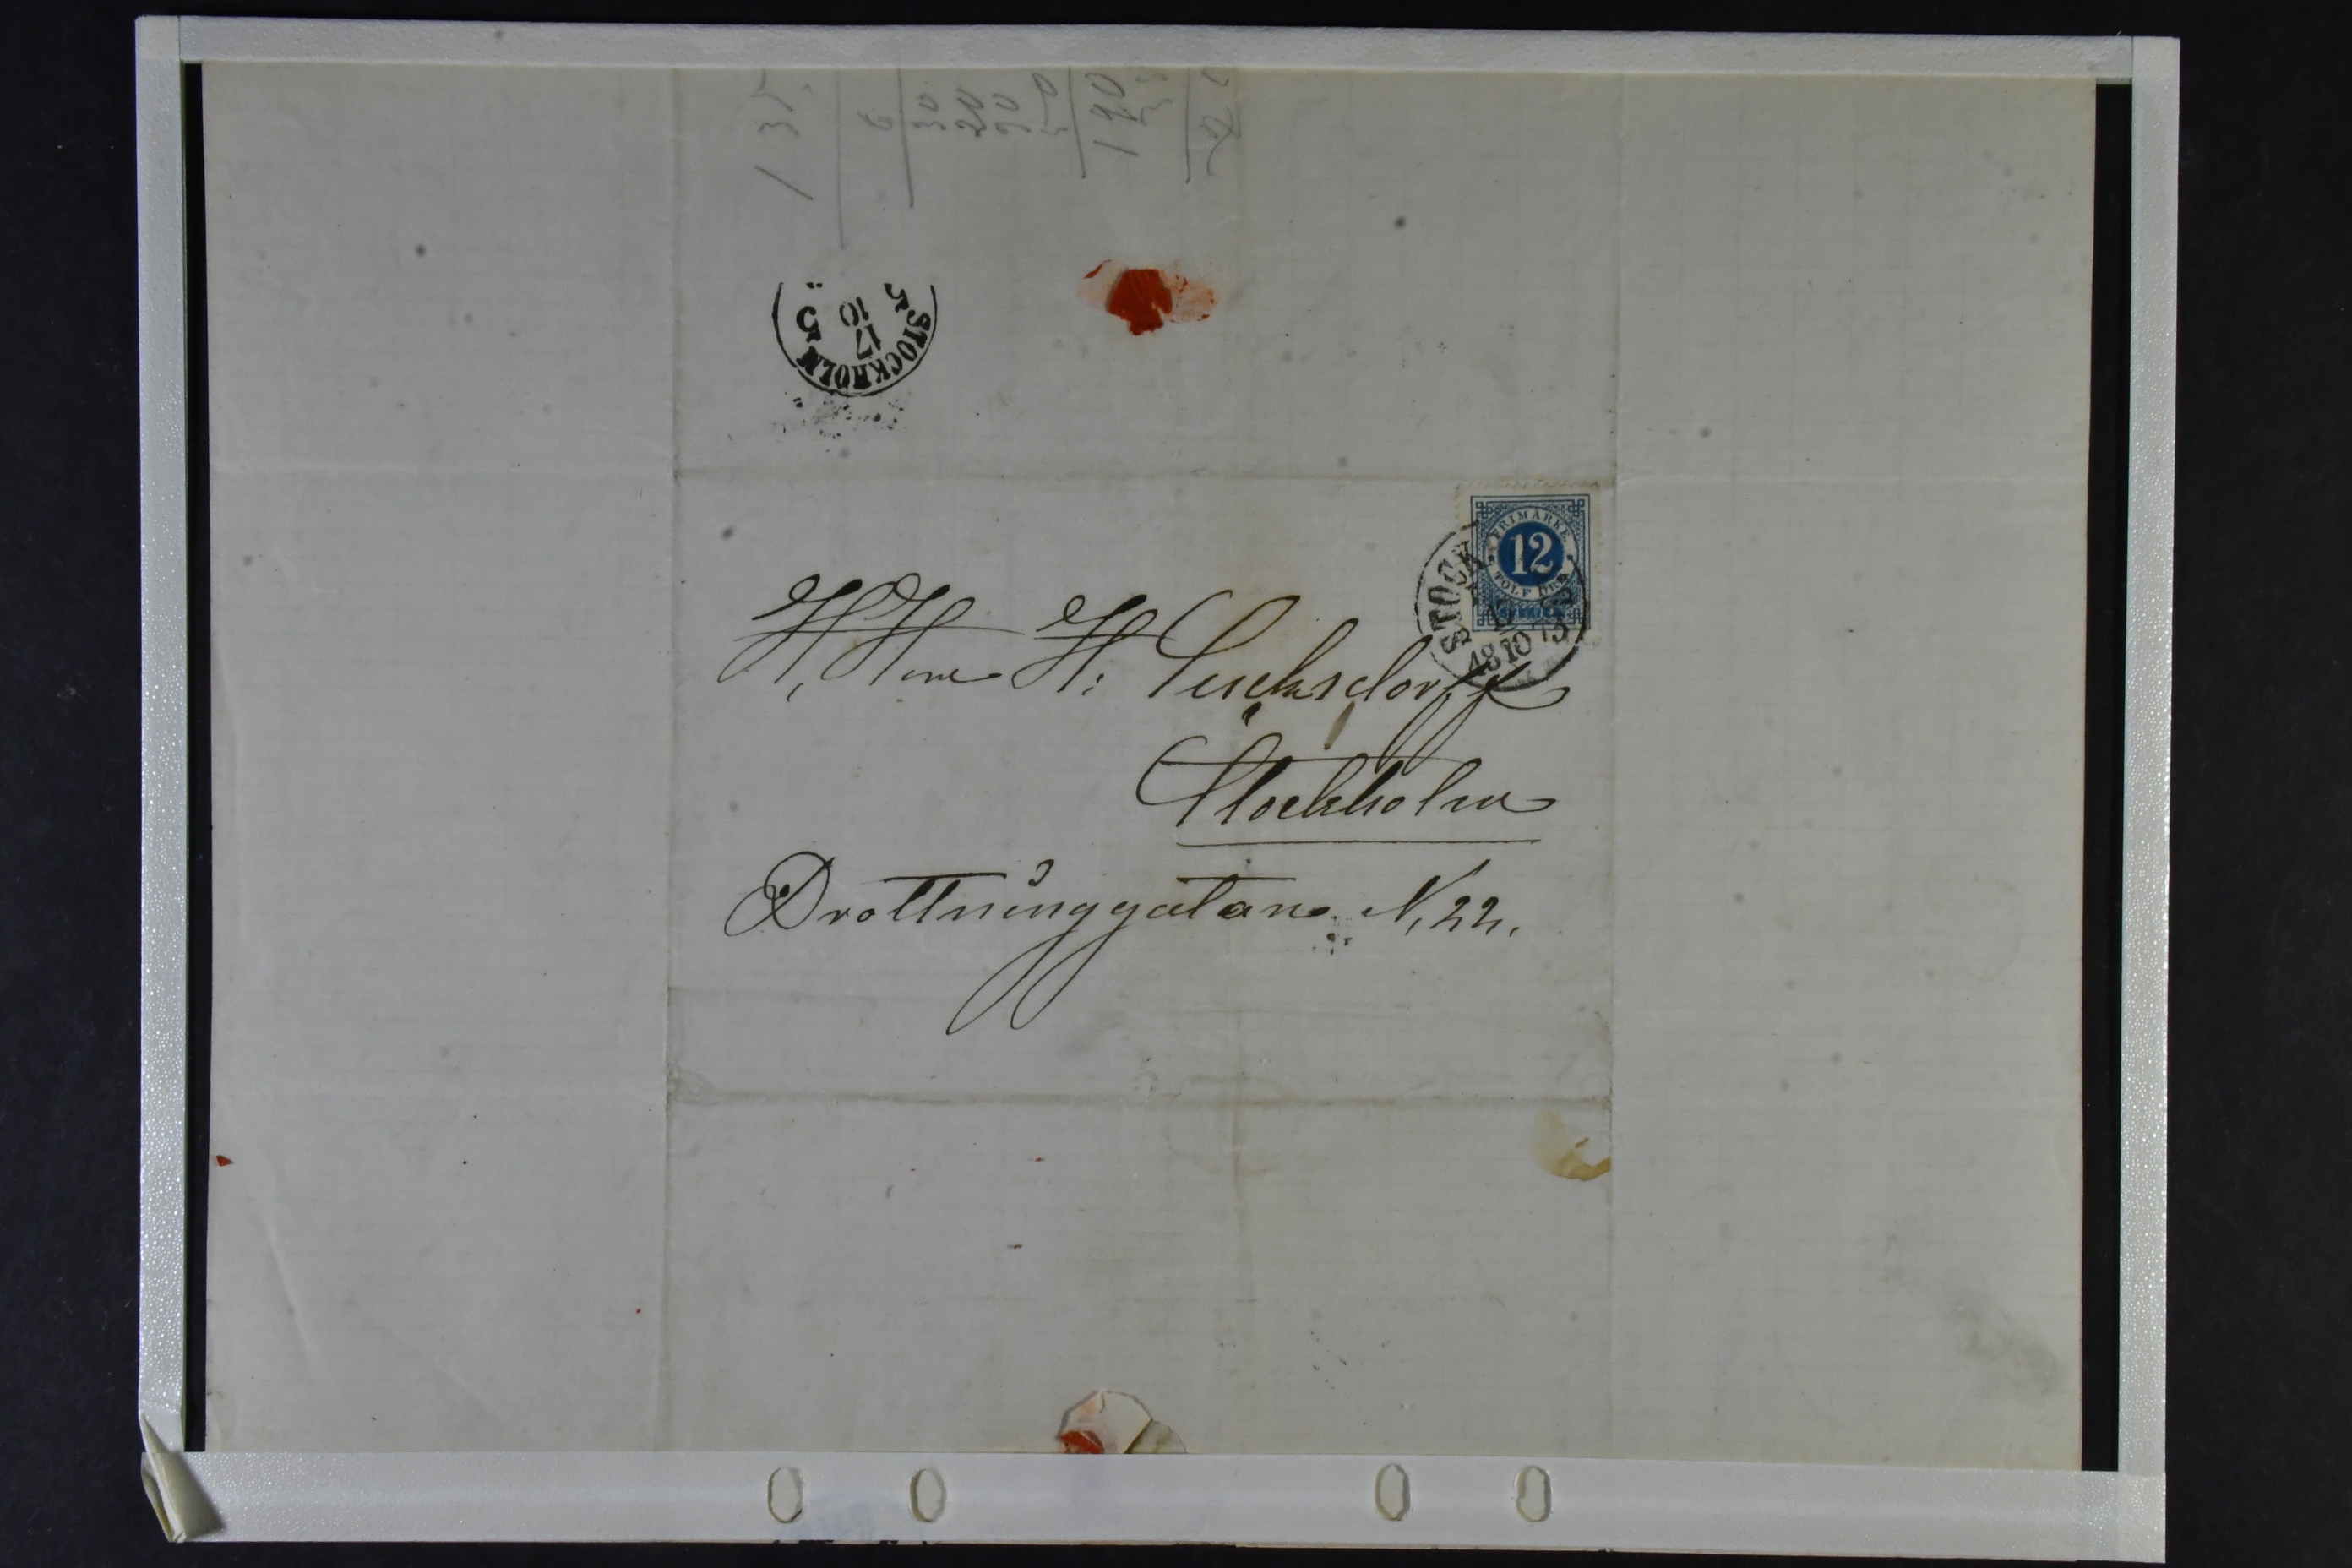 1 35
6
30
20
90
50
190
STOCKHOLM 5
17
10
FRIMÄRKE
12
TOLF ÖRE
STOCK
17
18 10 73
H. Herr H: Lucksdorff
Stockholm
Drottninggatan N, 22.